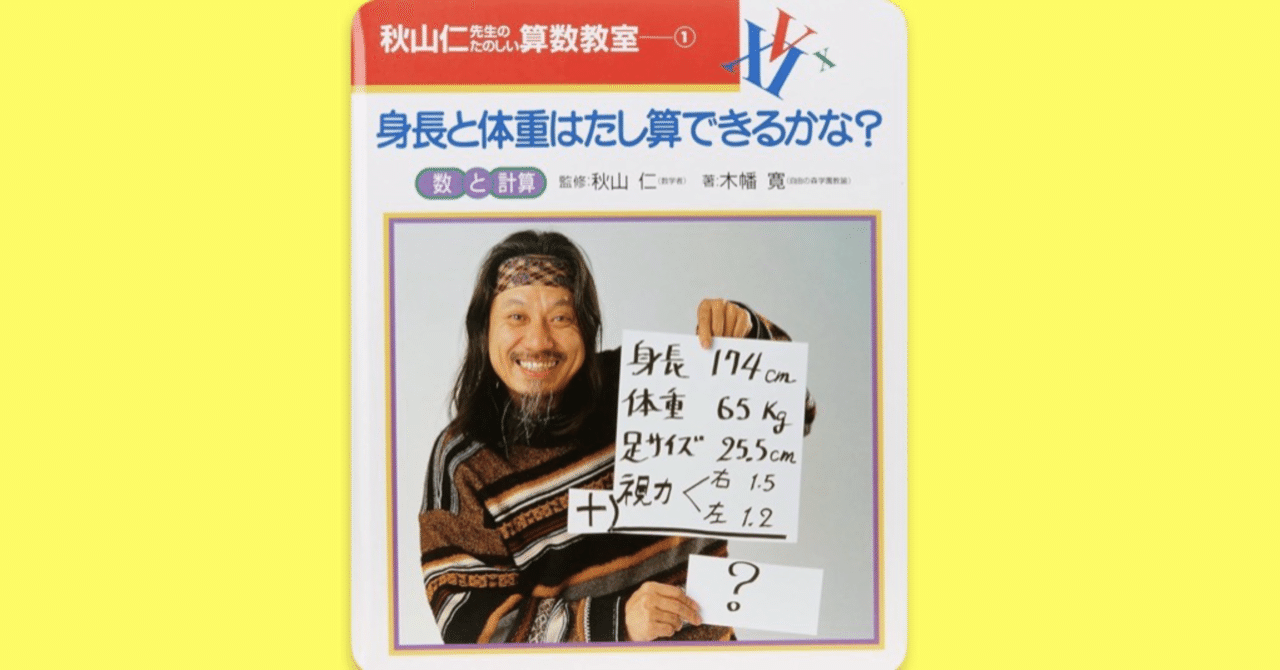 秋山仁先生のたのしい算数教室―①
身長と体重はたし算できるかな?
数と計算 監修:秋山 仁(数学者) 著:木幡 寛(自由の森学園教諭)
身長 174cm
体重 65Kg
足サイズ 25.5cm
視力 右 1.5
左 1.2
+)
?